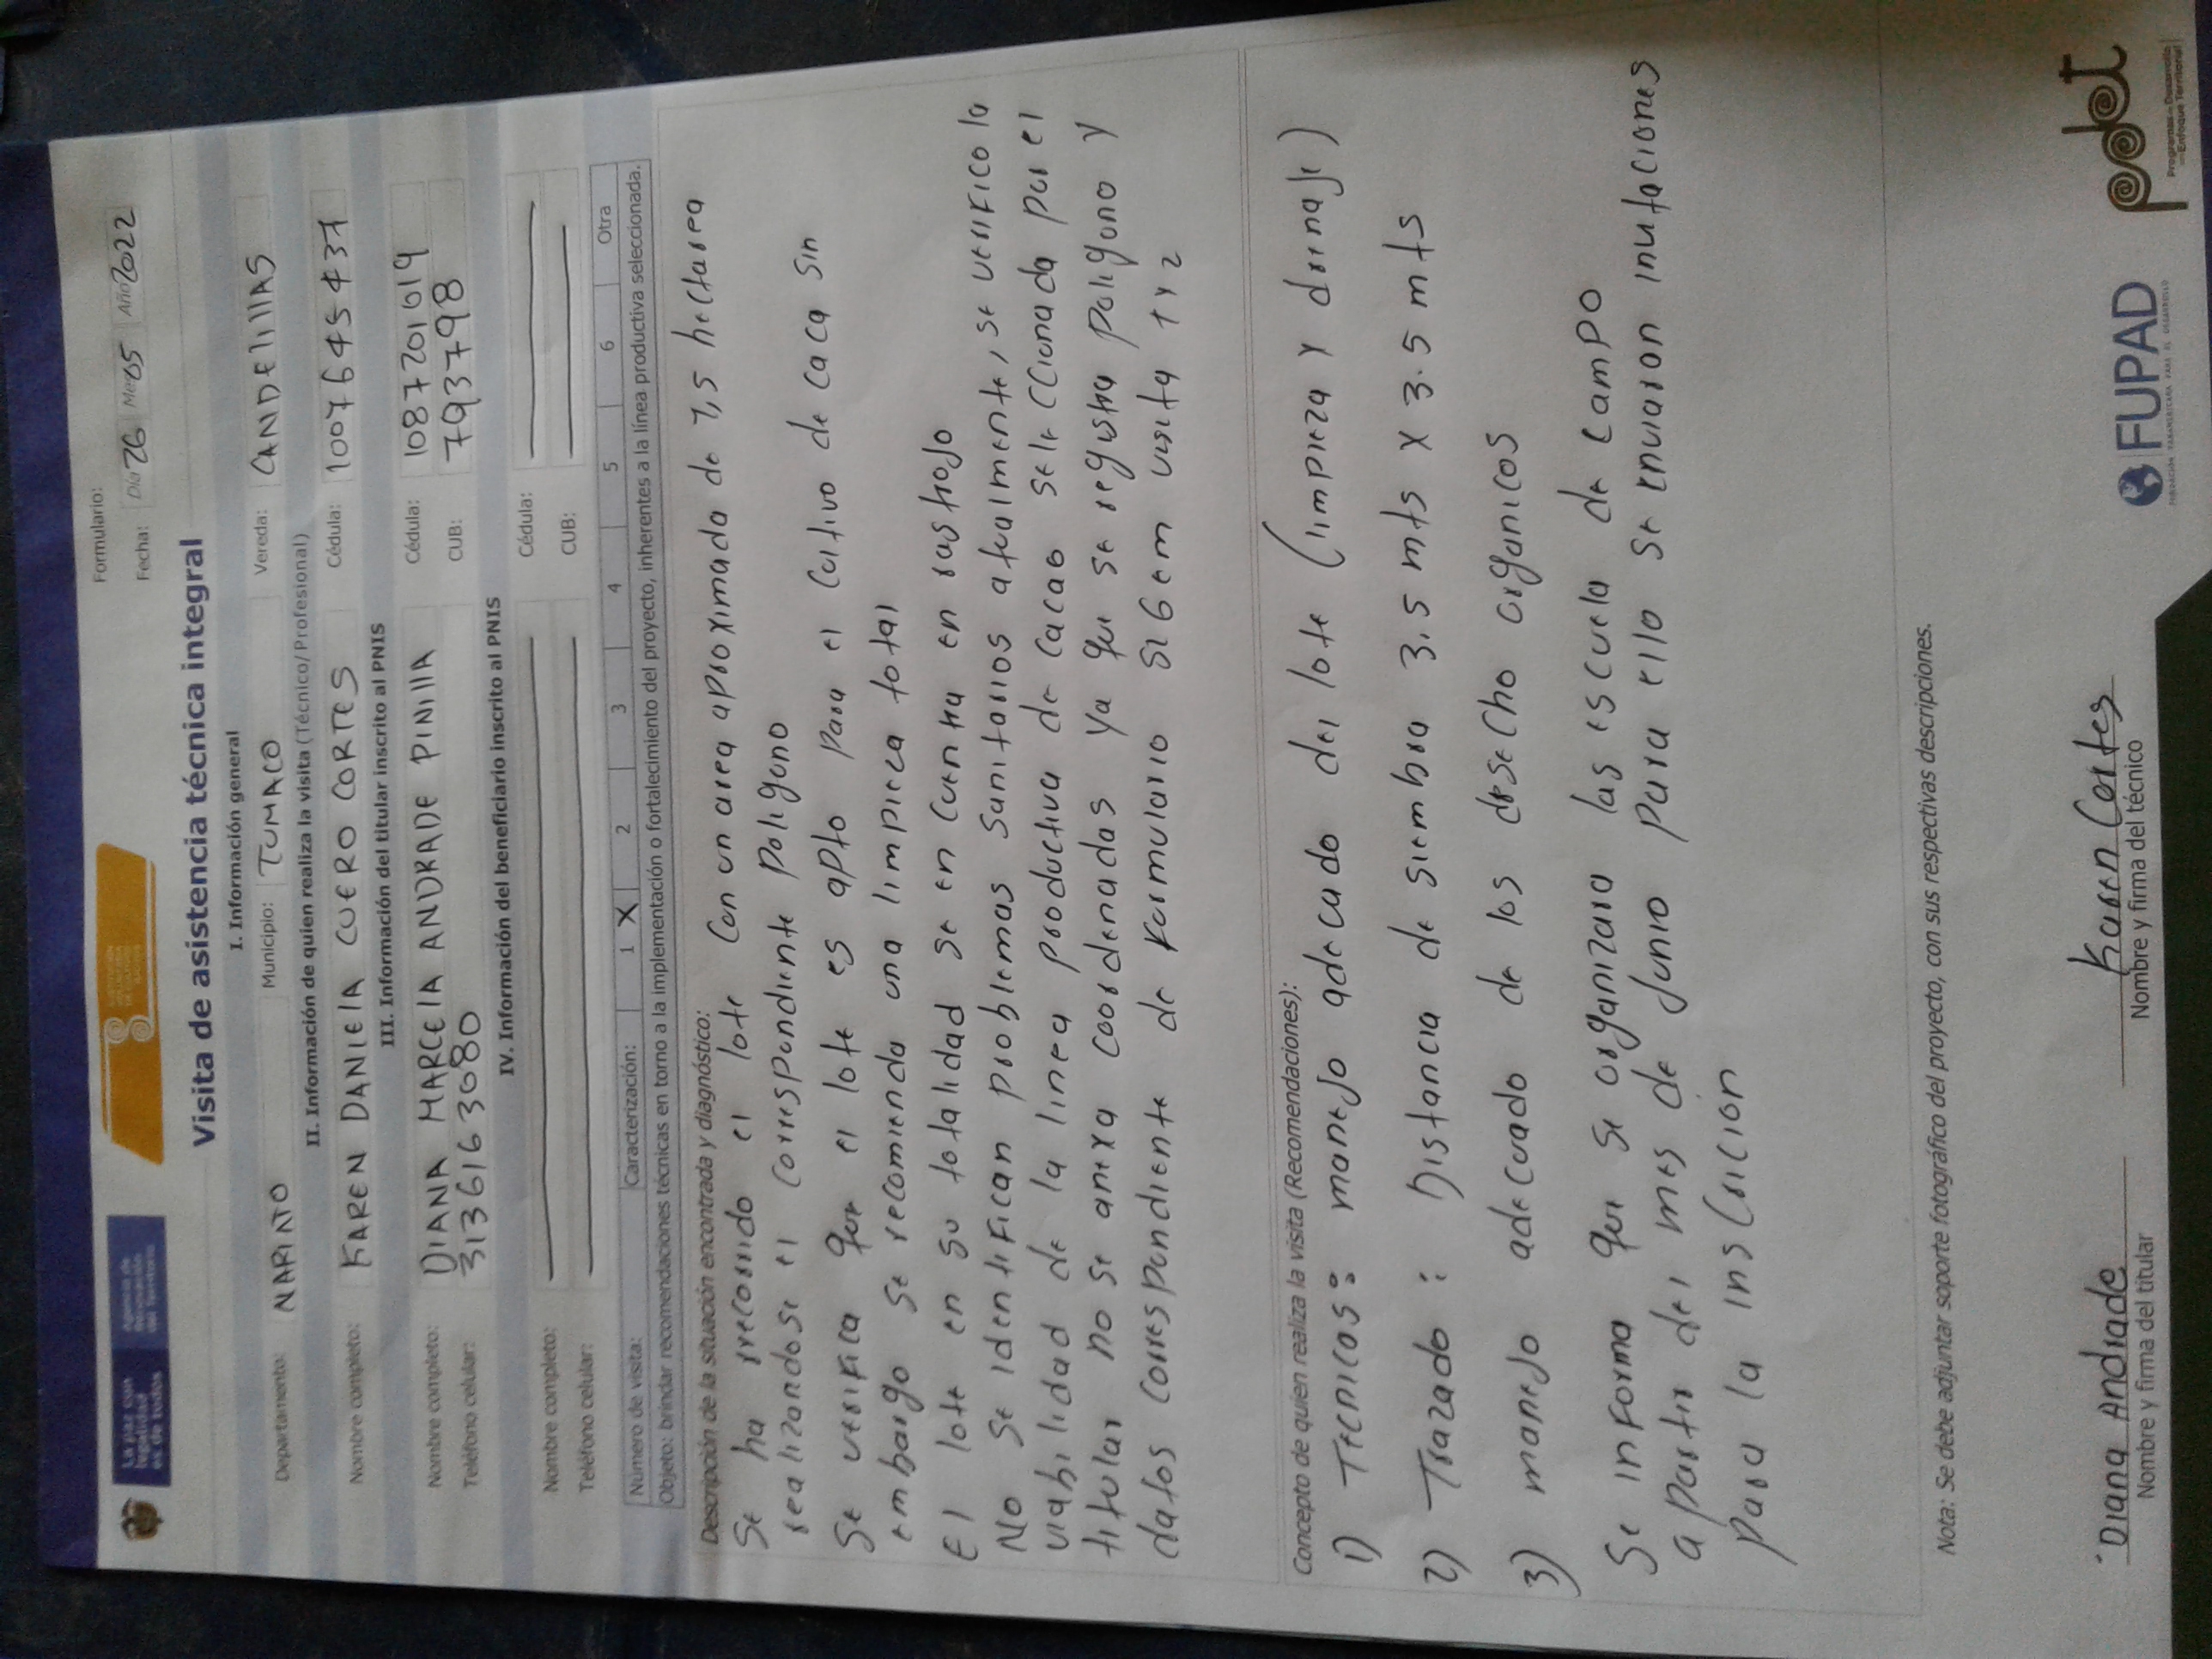 La paz con
legalidad
es de todos
Agencia de
Renovación
del Territorio
Formulario:
Fecha: Día 26 Mes 05 Año 2022
Visita de asistencia técnica integral
I. Información general
Departamento: NARIÑO Municipio: TUMACO Vereda: CANDELILLAS
II. Información de quien realiza la visita (Técnico/Profesional)
Nombre completo: KAREN DANIELA CUERO CORTES Cédula:
III. Información del titular inscrito al PNIS
Nombre completo: DIANA MARCELA ANDRADE PINILLA Cédula: 1087201019
Teléfono celular: 3136163080 CUB: 793798
IV. Información del beneficiario inscrito al PNIS
Nombre completo: Cédula:
Teléfono celular: CUB:
Número de visita: Caracterización: 1 X 2 3 4 5 6 Otra
Objeto: brindar recomendaciones técnicas en torno a la implementación o fortalecimiento del proyecto, inherentes a la línea productiva seleccionada.
Descripción de la situación encontrada y diagnóstico:
Se ha recorrido el lote Con un area aproximada de hectarea
realizandose el correspondiente poligono
Se verifica que el lote es apto para el cultivo de caca sin
embargo se recomienda una limpieca total
El lote en su totalidad se en cuentra en rastrojo
No se identifican problemas sanitarios atualmente, se verifico la
viabilidad de la linea productiva de cacao seleccionada por el
titular no se anexa coordenadas ya que se registra poligono y
datos correspondiente de formulario visita 1 y 2
Concepto de quien realiza la visita (Recomendaciones):
1) Tecnicos: manejo adecuado del lote (limpieza y drenaje)
2) Trazado: Distancia de siembra 3.5 mts x 3.5 mts
3) manejo adecuado de los desecho organicos
Se informa que se organizara las escuela de campo
a partir del mes de Junio para ello se enviaron invitaciones
para la inscricion
Nota: Se debe adjuntar soporte fotográfico del proyecto, con sus respectivas descripciones.
Diana Andrade Karen Cortes
Nombre y firma del titular Nombre y firma del técnico
FUPAD
FUNDACIÓN PANAMERICANA PARA EL DESARROLLO
pdet
Programas de Desarrollo
con Enfoque Territorial